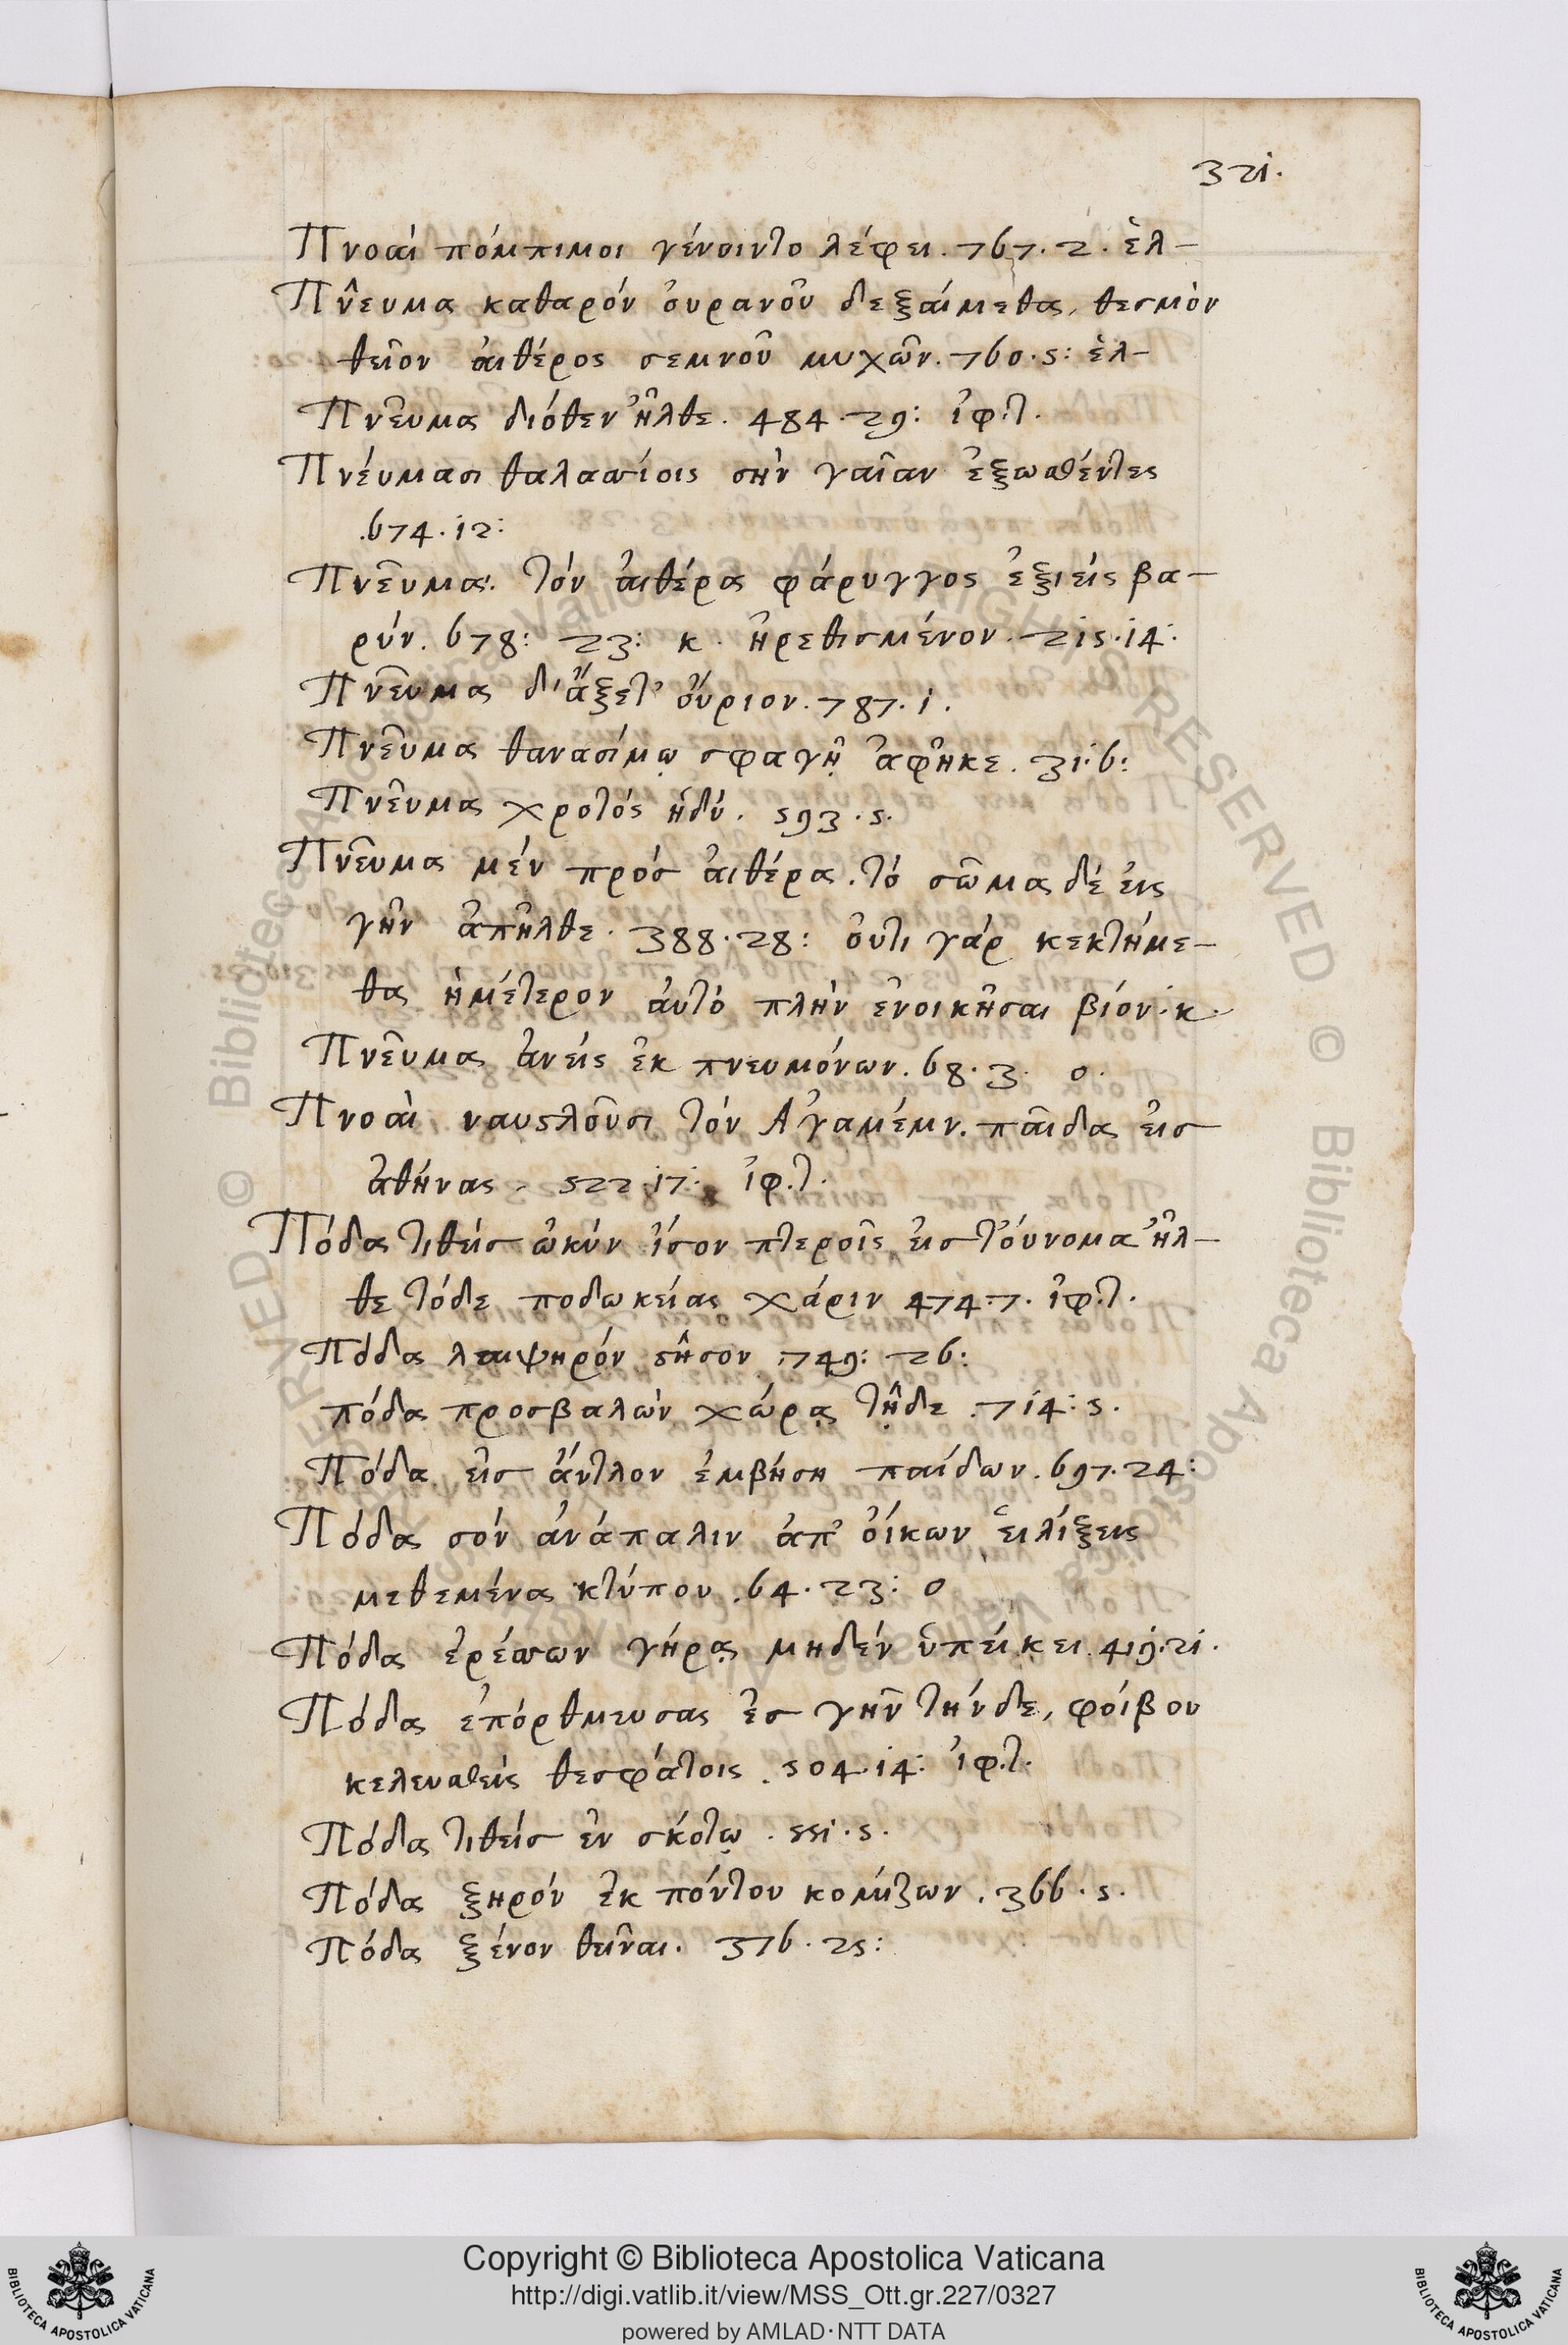 321.
Πνοαὶ πόμπιμοι γένοιντο λέφει. 767. 2. ἑλ-
Πνεῦμα καθαρόν ὀυρανοῦ δεξαίμεθα, θεσμόν
θεῖον ἀιθέρος σεμνοῦ μυχῶν. 760. 5: ἑλ-
Πνεῦμα διόθεν ἦλθε. 484. 29: ἰφ. τ.
Πνέυμασι θαλασσίοις σήν γαῖαν ἐξωσθέντες
.674. 12:
Πνεῦμα. τόν ἀιθέρα φάρυγγος ἐξιείς βα-
ρύν. 678: 23: κ. ἠρεθισμένον. 215. 14.
Πνεῦμα δ' ἄξετ' ὄυριον. 787. 1.
Πνεῦμα θανασίμῳ σφαγῇ ἀφῆκε. 31. 6:
Πνεῦμα χροτός ἡδύ. 593. 5.
Πνεῦμα μέν πρός ἀιθέρα. τό σῶμα δέ ἐις
γῆν ἀπῆλθε. 388. 28: ὄυτι γάρ κεκτήμε-
θα ἡμέτερον ἀυτό πλήν ἐνοικῆσαι βίον. κ.
Πνεῦμα ἀνείς ἐκ πνευμόνων. 68. 3. ο.
Πνοαὶ ναυστλοῦσι τόν Ἀγαμέμν. παῖδα ἐισ
ἀθήνας. 522. 17: ἰφ. τ.
Πόδα τιθείς ὠκύν ἴσον πτεροῖς ἐις τόυνομα ἦλ-
θε τόδε ποδωκείας χάριν 474. 7. ἰφ. τ.
Πόδα λαιψηρόν στῆσον .749: 26:
πόδα προσβαλών χώρᾳ τῇδε .714: 5.
Πόδα ἐις ἄντλον ἐμβήση παίδων. 697. 24:
Πόδα σόν ἀνάπαλιν ἀπ' ὄικων ἑιλίξεις
μεθεμένα κτύπου .64. 23: ο
Πόδα ἐρέσσων γήρᾳ μηδέν ὑπείκει. 419. 21.
Πόδα ἐπόρθμευσας ἐς γῆν τήνδε, φοίβου
κελευσθείς θεσφάτοις. 504. 14: ἰφ. τ.
Πόδα τιθείς ἐν σκότῳ. 551. 5.
Πόδα ξηρόν ἐκ πόντου κομίζων. 366. 5.
Πόδα ξένον θεῖναι. 376. 25:
Copyright © Biblioteca Apostolica Vaticana
http://digi.vatlib.it/view/MSS_Ott.gr.227/0327
powered by AMLAD·NTT DATA